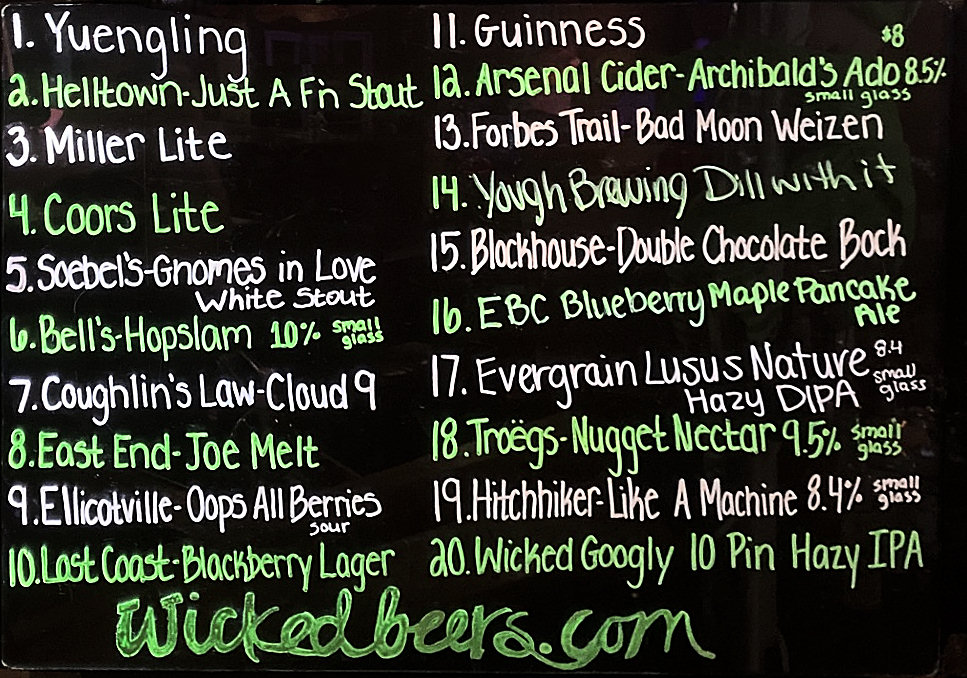 1. Yuengling
2. Helltown-Just A F'n Stout
3. Miller Lite
4. Coors Lite
5. Soebel's-Gnomes in Love
White Stout
6. Bell's-Hopslam 10% small glass
7. Coughlin's Law-Cloud 9
8. East End-Joe Melt
9. Ellicotville-Oops All Berries
sour
10. Lost Coast-Blackberry Lager
11. Guinness
$8
12. Arsenal Cider-Archibald's Ado 8.5%
small glass
13. Forbes Trail-Bad Moon Weizen
14. Yough Brewing Dill with it
15. Blockhouse-Double Chocolate Bock
16. EBC Blueberry Maple Pancake
Ale
17. Evergrain Lusus Nature 8.4
Hazy DIPA small glass
18. Troëgs-Nugget Nectar 9.5% small glass
19. Hitchhiker-Like A Machine 8.4% small glass
20. Wicked Googly 10 Pin Hazy IPA
Wickedbeers.com